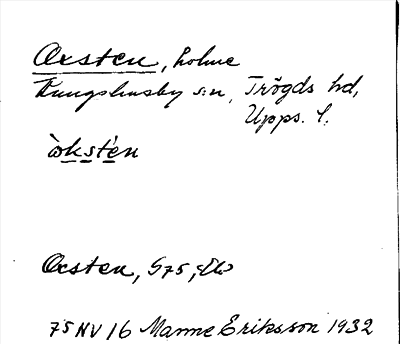 Oxsten, holme
Kungshusby s:n, Trögds hd,
Upps. l.
òkstén
Oxsten, G75, NV
75 NV 16 Manne Eriksson 1932